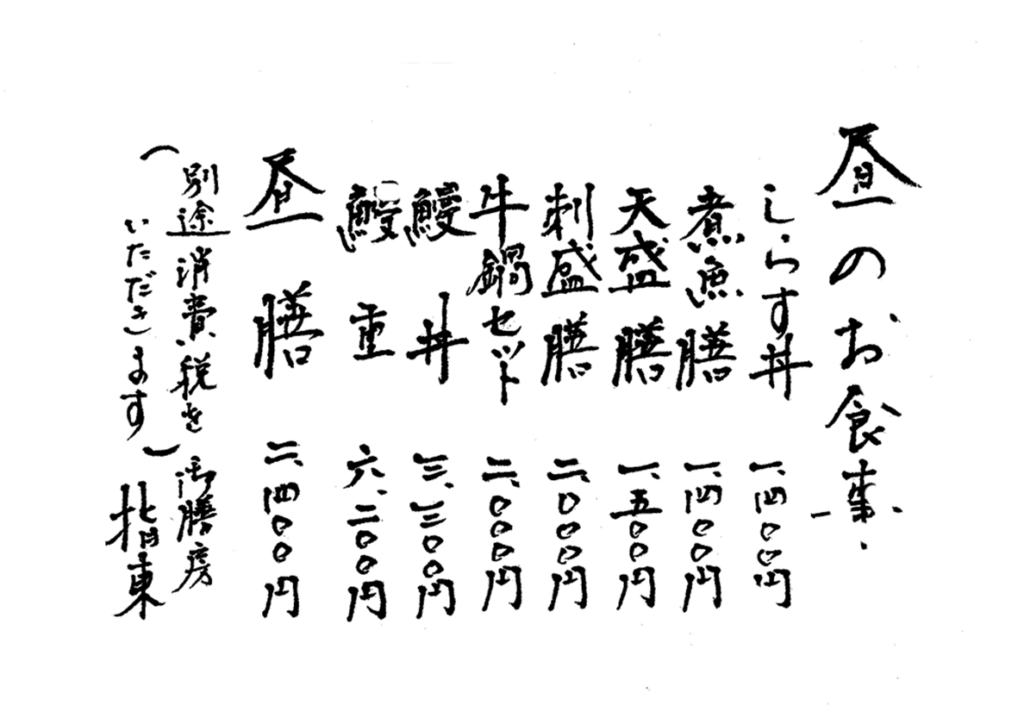 昼のお食事
しらす丼 一、四〇〇円
煮魚膳 一、四〇〇円
天盛膳 一、五〇〇円
刺盛膳 二、〇〇〇円
牛鍋セット 二、〇〇〇円
鰻丼 三、三〇〇円
鰻重 六、二〇〇円
昼膳 二、四〇〇円
(別途消費税を
いただきます)
御膳房
東